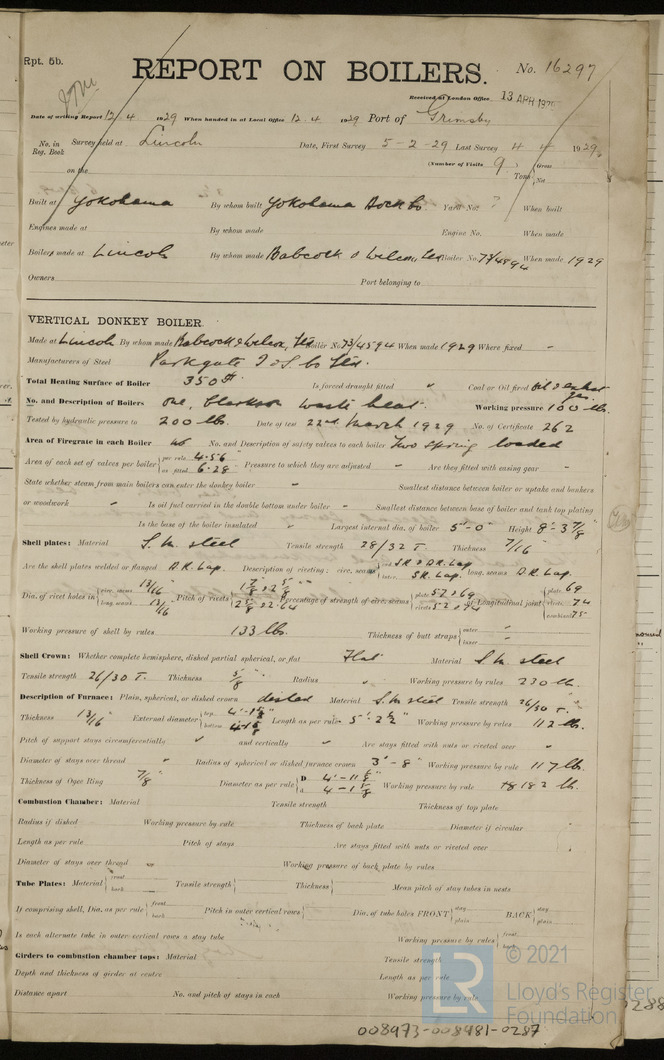 Rpt. 5b.
REPORT ON BOILERS.
No. 16297
Received at London Office 13 APR 1929
Date of writing Report 12. 4 1929 When handed in at Local Office 12. 4 1929 Port of Grimsby
No. in Reg. Book Survey held at Lincoln Date, First Survey 5-2-29 Last Survey 4 4 1929
(Number of Visits 9) Gross Tons Net
on the
Built at Yokohama By whom built Yokohama Dock Co Yard No. ? When built
Engines made at By whom made Engine No. When made
Boilers made at Lincoln By whom made Babcock & Wilcox, Ltd Boiler No. 73/4594 When made 1929
Owners Port belonging to
VERTICAL DONKEY BOILER.
Made at Lincoln By whom made Babcock & Wilcox, Ltd Boiler No. 73/4594 When made 1929 Where fixed -
Manufacturers of Steel Parkgate I & S. Co Ltd.
Total Heating Surface of Boiler 350 ft Is forced draught fitted " Coal or Oil fired Oil & exhaust gas.
No. and Description of Boilers One, Clarkson waste heat. Working pressure 100 lbs.
Tested by hydraulic pressure to 200 lbs. Date of test 22nd March 1929 No. of Certificate 262
Area of Firegrate in each Boiler No. and Description of safety valves to each boiler Two spring loaded
Area of each set of valves per boiler { per rule 4.56 as fitted 6.28 Pressure to which they are adjusted " Are they fitted with easing gear "
State whether steam from main boilers can enter the donkey boiler " Smallest distance between boiler or uptake and bunkers
or woodwork " Is oil fuel carried in the double bottom under boiler " Smallest distance between base of boiler and tank top plating
Is the base of the boiler insulated " Largest internal dia. of boiler 5'-0" Height 8'-3 7/8"
Shell plates: Material S.M. steel Tensile strength 28/32 T. Thickness 7/16"
Are the shell plates welded or flanged D.R. Lap. Description of riveting: circ. seams { end S.R. & D.R. Lap inter. S.R. Lap. long. seams D.R. Lap.
Dia. of rivet holes in { circ. seams 13/16 long. seams 13/16 Pitch of rivets Percentage of strength of circ. seams { plate 52 & 69 rivets of Longitudinal joint { plate 69 rivets 74 combined 75
Working pressure of shell by rules 133 lbs. Thickness of butt straps { outer " inner "
Shell Crown: Whether complete hemisphere, dished partial spherical, or flat Flat Material S.M. steel
Tensile strength 26/30 T. Thickness 5/8" Radius " Working pressure by rules 230 lb.
Description of Furnace: Plain, spherical, or dished crown dished Material S.M. steel Tensile strength 26/30 T.
Thickness 13/16" External diameter { top 4'-1 5/8" bottom 4'-1 5/8" Length as per rule 5'-2 1/2" Working pressure by rules 112 lb.
Pitch of support stays circumferentially " and vertically " Are stays fitted with nuts or riveted over "
Diameter of stays over thread " Radius of spherical or dished furnace crown 3'-8" Working pressure by rule 117 lb.
Thickness of Ogee Ring 7/8" Diameter as per rule { D 4'-11 5/8" d 4'-1 5/8 Working pressure by rule 182 lb.
Combustion Chamber: Material Tensile strength Thickness of top plate
Radius if dished Working pressure by rule Thickness of back plate Diameter if circular
Length as per rule Pitch of stays Are stays fitted with nuts or riveted over
Diameter of stays over thread Working pressure of back plate by rules
Tube Plates: Material { front back Tensile strength { Thickness { Mean pitch of stay tubes in nests
If comprising shell, Dia. as per rule { front back Pitch in outer vertical rows { Dia. of tube holes FRONT { stay plain BACK { stay plain
Is each alternate tube in outer vertical rows a stay tube Working pressure by rules { front back
Girders to combustion chamber tops: Material Tensile strength
Depth and thickness of girder at centre Length as per rule
Distance apart No. and pitch of stays in each Working pressure by rule
© 2021
Lloyd's Register
Foundation
008973-008981-0287